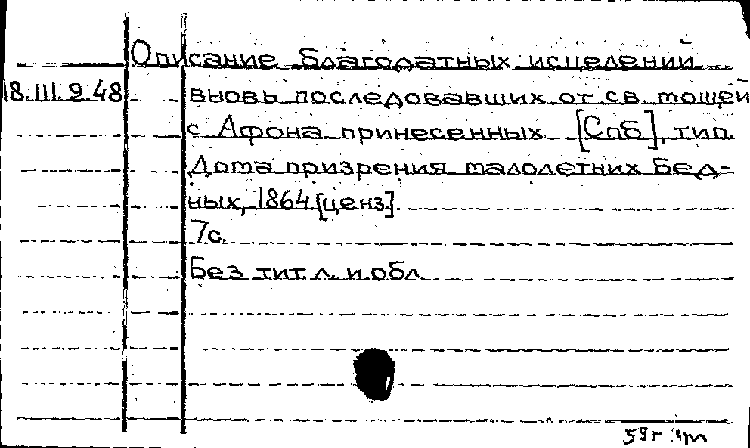 Описание благодатных исцелений
18.III.9.48 вновь последовавших от св. мощей
с Афона принесенных [Спб], тип.
Дома призрения малолетних бед-
ных, 1864 [ценз].
7с.
Без тит. л. и обл.